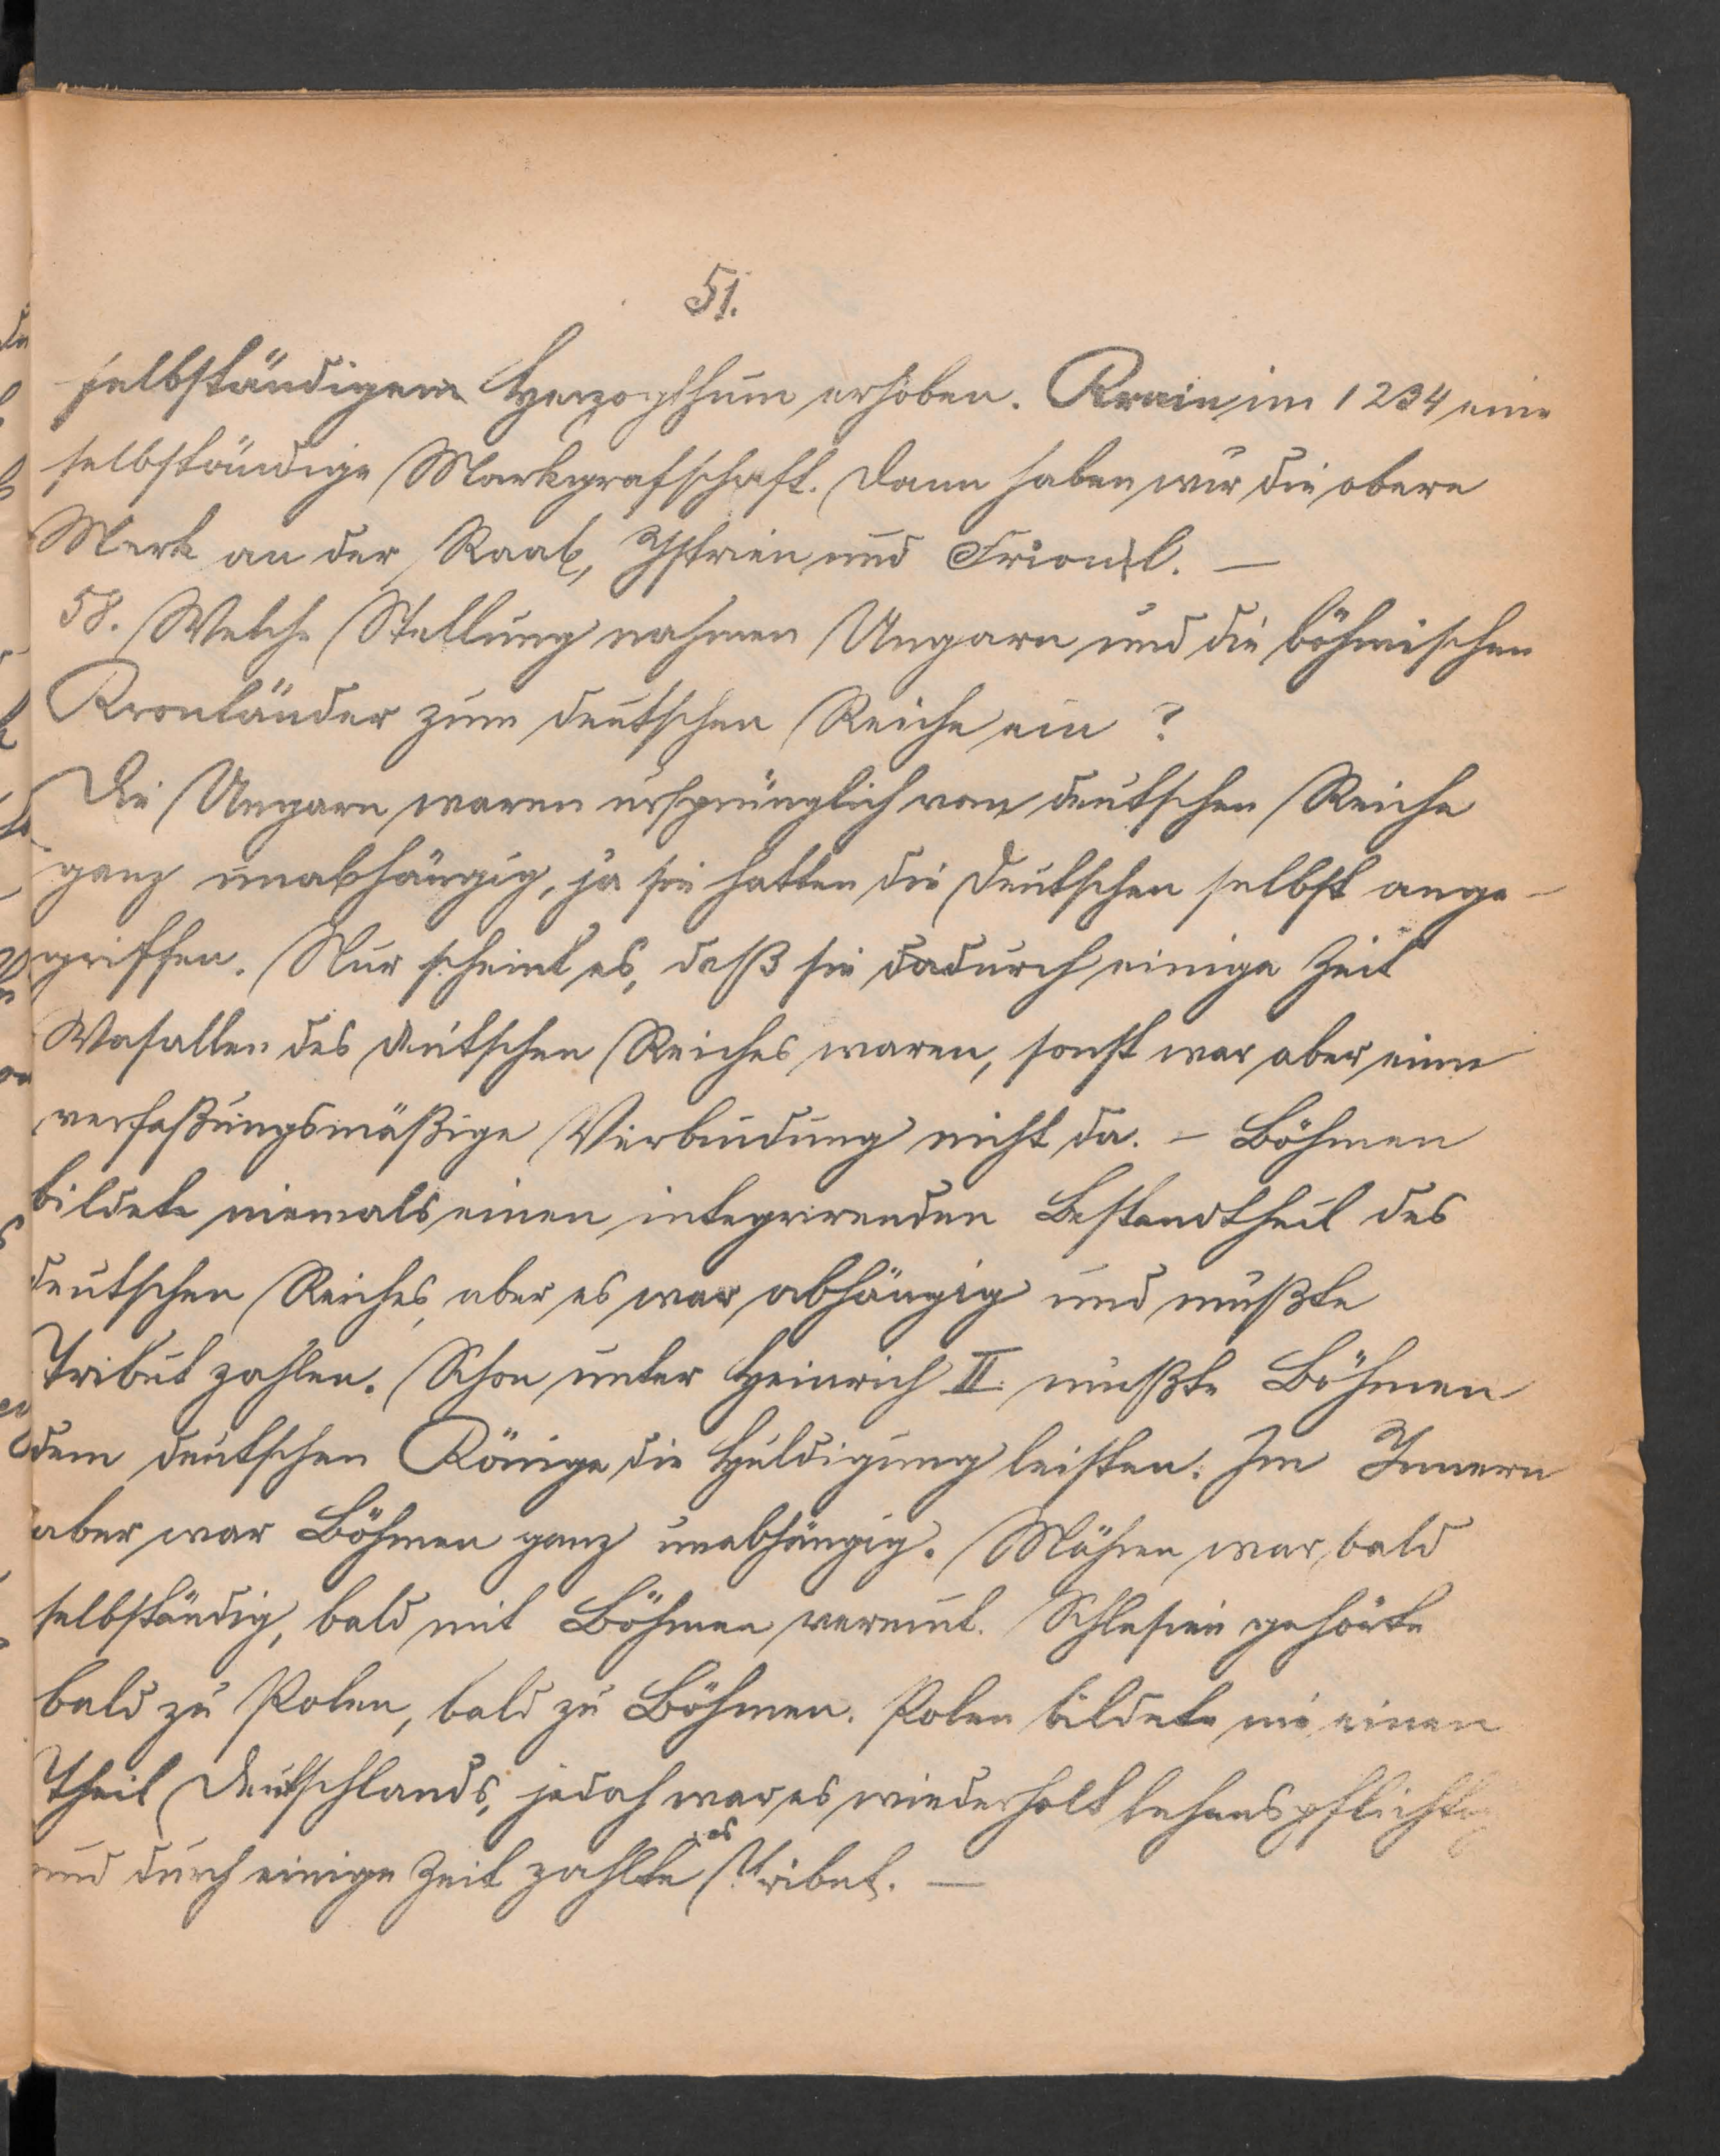 51.
selbständigem Herzogthum erhoben. Krain im 1234 eine
selbständige Markgrafschaft. Dann haben wir die obere
Mark an der Raab, Istrien und Friaul. —
58. Welche Stellung nahmen Ungarn und die böhmischen
Kronländer zum deutschen Reiche ein?
Die Ungarn waren ursprünglich vom deutschen Reiche
ganz unabhängig, ja sie hatten die Deutschen selbst ange-
griffen. Nur scheint es, daß sie dadurch einige Zeit
Wasallen des deutschen Reiches waren, sonst war aber eine
verfaßungsmäßige Verbindung nicht da. – Böhmen
bildete niemals einen integrirenden Bestandtheil des
deutschen Reiches, aber es war abhängig und mußte
Tribut zahlen. Schon unter Heinrich II. mußte Böhmen
dem deutschen Könige die Huldigung leisten. Im Innern
aber war Böhmen ganz unabhängig. Mähren war bald
selbständig, bald mit Böhmen vereint. Schlesien gehörte
bald zu Polen, bald zu Böhmen. Polen bildete nie einen
Theil Deutschlands, jedoch war es wiederholt lehenspflichtig
und durch einige Zeit zahlte es Tribut. —